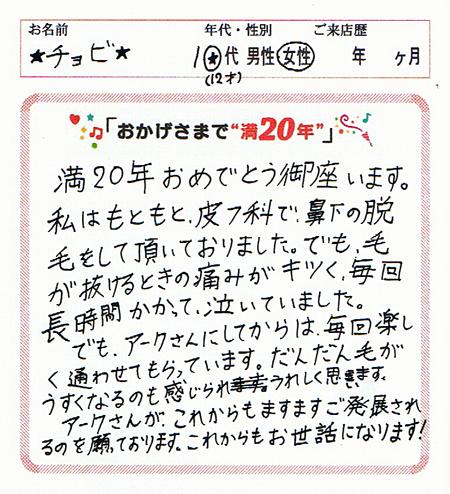 お名前 年代・性別 ご来店歴
★チョビ★ 1★代 男性 女性 年 ヶ月
(12才)
「おかげさまで"満20年"」
満20年おめでとう御座います。
私はもともと、皮フ科で、鼻下の脱
毛をして頂いておりました。でも、毛
が抜けるときの痛みがキツく、毎回
長時間かかって、泣いていました。
でも、アークさんにしてからは、毎回楽し
く通わせてもらっています。だんだん毛が
うすくなるのも感じられ うれしく思います。
アークさんが、これからもますますご発展され
るのを願っております。これからもお世話になります!